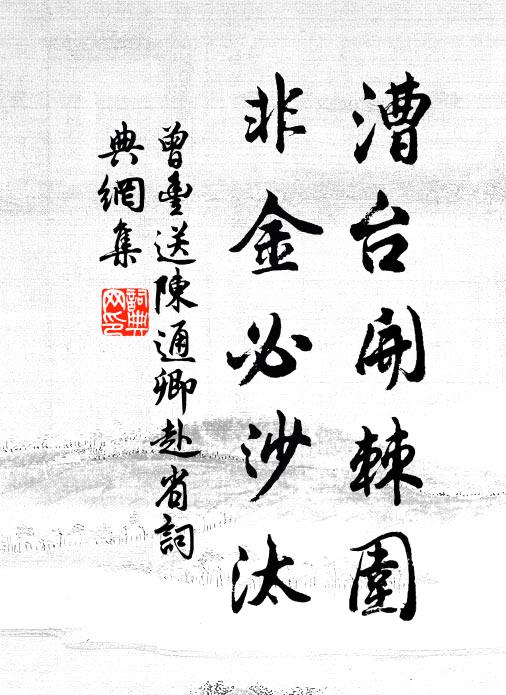 漕台開棘圍
非金必沙汰
曾豐送陳通卿赴省詞
典網集
詞典網印